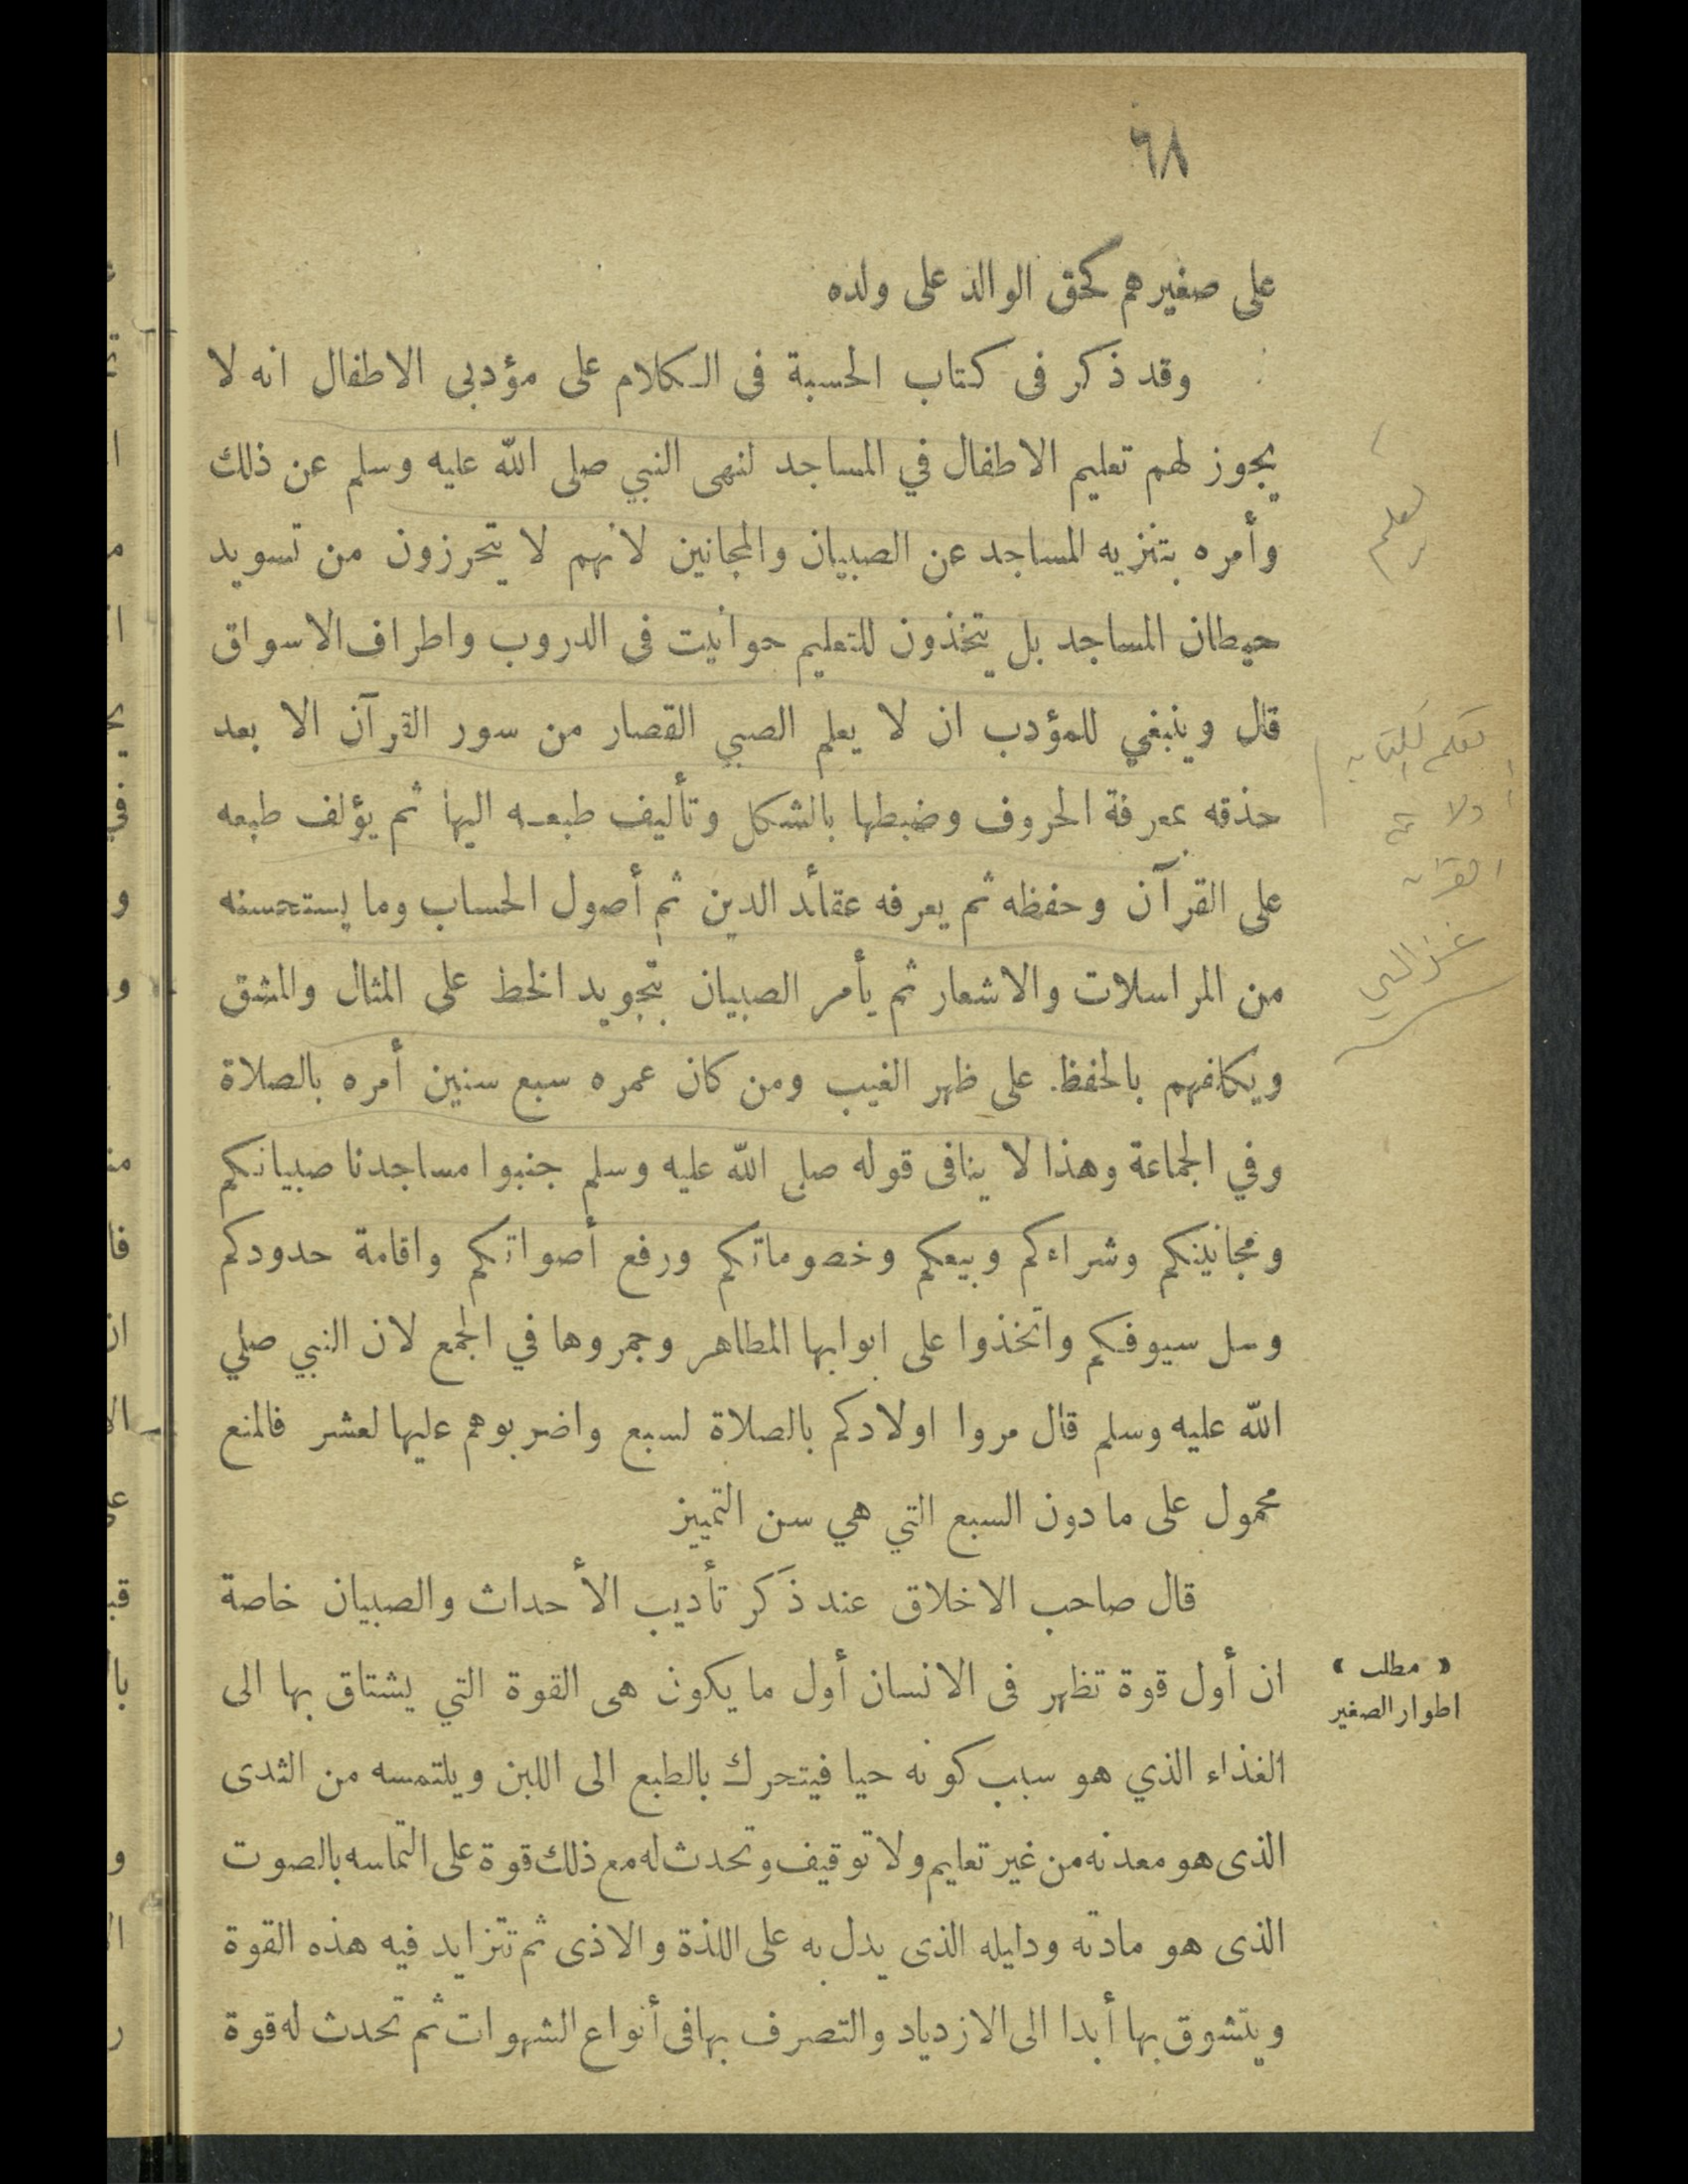 ٦٨
على صغيرهم كحق الوالد على ولده
وقد ذكر فى كتاب الحسبة فى الكلام على مؤدبى الاطفال انه لا
يجوز لهم تعليم الاطفال في المساجد لنهى النبي صلى الله عليه وسلم عن ذلك
وأمره بتنزيه المساجد عن الصبيان والمجانين لانهم لا يتحرزون من تسويد
حيطان المساجد بل يتخذون للتعليم حوانيت فى الدروب واطراف الاسواق
قال وينبغي للمؤدب ان لا يعلم الصبي القصار من سور القرآن الا بعد
حذقه بمعرفة الحروف وضبطها بالشكل وتأليف طبعه اليها ثم يؤلف طبعه
على القرآن وحفظه ثم يعرفه عقائد الدين ثم أصول الحساب وما يستحسنه
من المراسلات والاشعار ثم يأمر الصبيان بتجويد الخط على المثال والمشق
ويكافهم بالحفظ على ظهر الغيب ومن كان عمره سبع سنين أمره بالصلاة
وفي الجماعة وهذا لا ينافى قوله صلى الله عليه وسلم جنبوا مساجدنا صبيانكم
ومجانينكم وشراءكم وبيعكم وخصوماتكم ورفع أصواتكم واقامة حدودكم
وسل سيوفكم واتخذوا على ابوابها المطاهر وجمروها في الجمع لان النبي صلي
الله عليه وسلم قال مروا اولادكم بالصلاة لسبع واضربوهم عليها لعشر فالمنع
محمول على ما دون السبع التي هي سن التمييز
قال صاحب الاخلاق عند ذكر تأديب الأحداث والصبيان خاصة
« مطلب »
اطوار الصغير
ان أول قوة تظهر فى الانسان أول ما يكون هى القوة التي يشتاق بها الى
الغذاء الذي هو سبب كونه حيا فيتحرك بالطبع الى اللبن ويلتمسه من الثدى
الذى هو معدنه من غير تعليم ولا توقيف وتحدث له مع ذلك قوة على التماسه بالصوت
الذى هو مادته ودليله الذى يدل به على اللذة والاذى ثم تتزايد فيه هذه القوة
ويتشوق بها أبدا الى الازدياد والتصرف بها فى أنواع الشهوات ثم تحدث له قوة